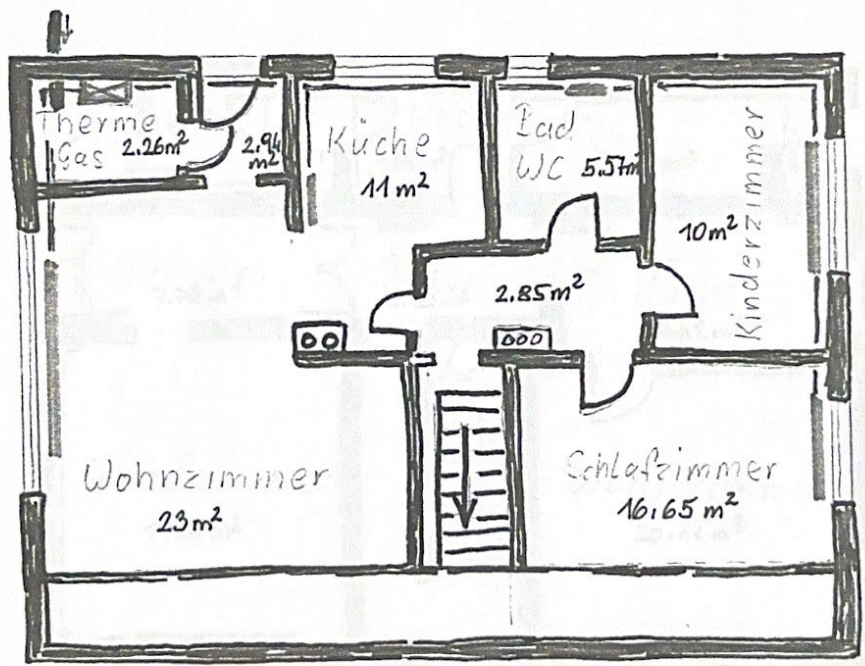 Therme
Gas 2.26m²
2.94
m²
Küche
11m²
Bad
WC 5.57m²
Kinderzimmer
10m²
2.85m²
Wohnzimmer
23m²
Schlafzimmer
16.65m²